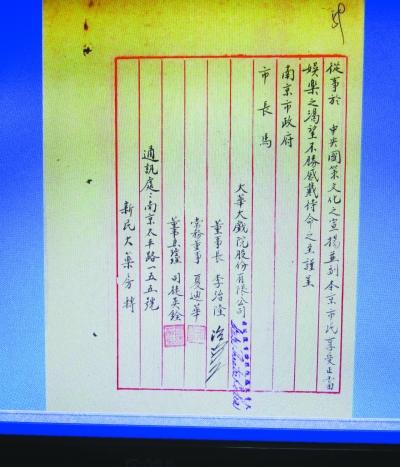 從事於　中央國策文化之宣揚並利本京市民享受正當
娛樂之渴望不勝感戴待命之至謹呈
南京市政府
市長馬
大華大戲院股份有限公司
董事長 李治隆
常務董事 夏迪華
董事兼經理 司徒英銓
通訊處：南京太平路一五五號
新民大藥房轉